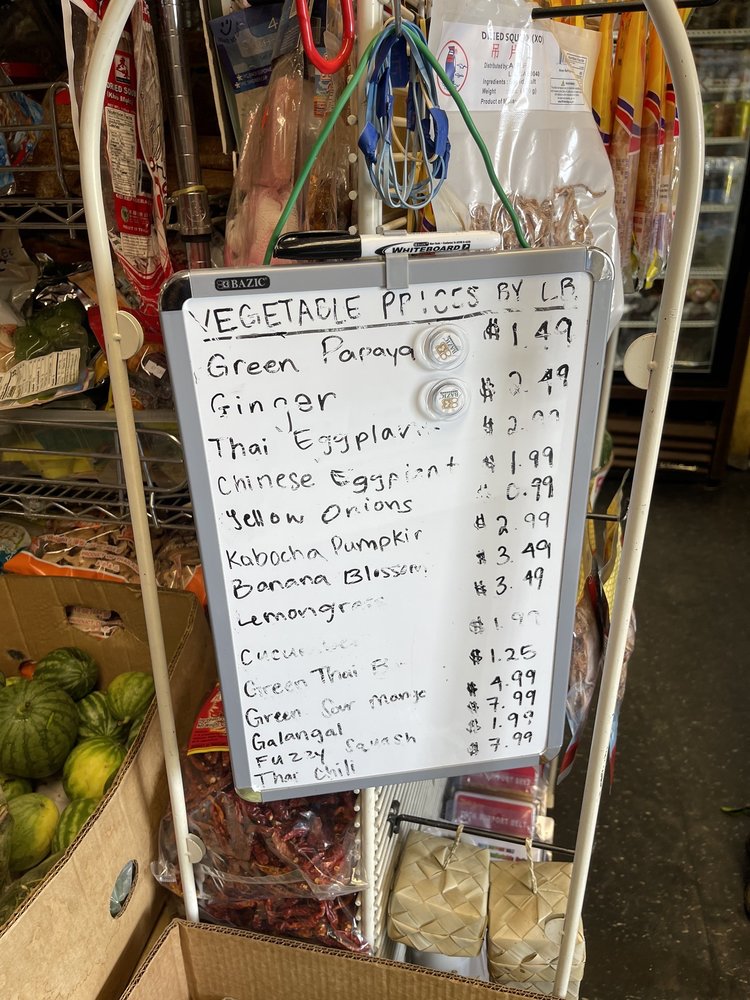 DRIED SQUID (XO)
Distributed by
Ingredients
Weight
Product of
WHITEBOARD
BAZIC
VEGETABLE PRICES BY LB
Green Papaya $1.49
Ginger $2.49
Thai Eggplant
Chinese Eggplant $1.99
Yellow Onions $0.99
Kabocha Pumpkin $2.99
Banana Blossom $3.49
Lemongrass $3.49
Cucumber $1.99
Green Thai $1.25
Green Sour Mango $4.99
Galangal $7.99
Fuzzy Squash $1.99
Thai Chili $7.99